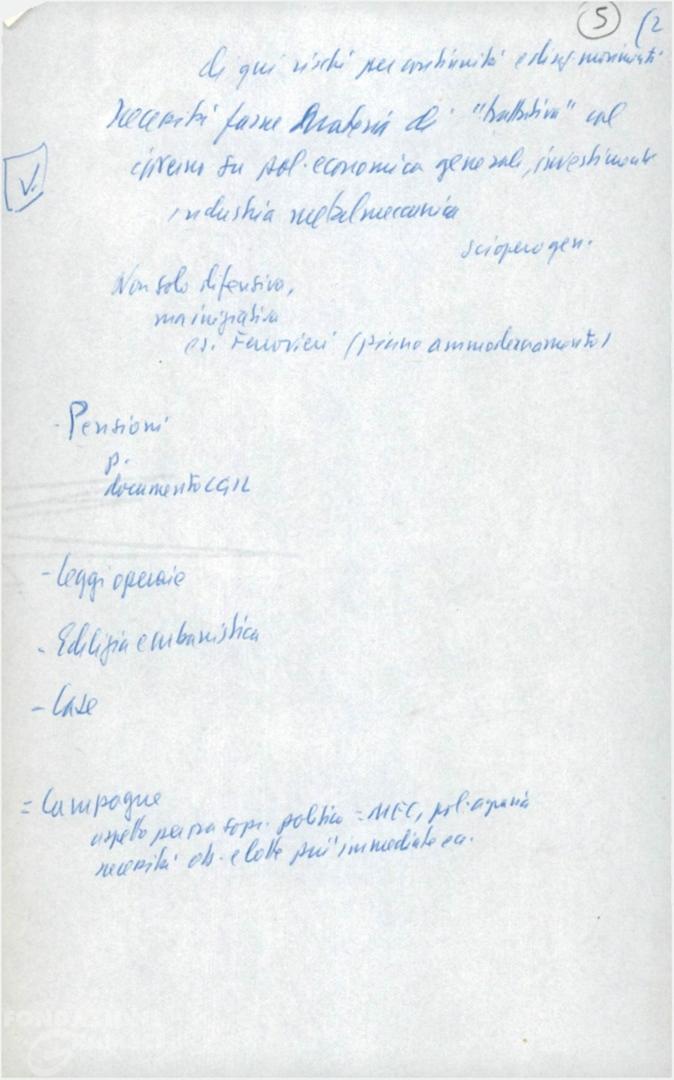 5 (2
di qui rischi per continuità e disg. movimenti
Necessità farne materia di "trattativa" col
governo su pol. economica generale, investimenti
industria metalmeccanica
sciopero gen.
V.
Non solo difensiva,
ma iniziativa
es. Ferrovieri (piano ammodernamento)
- Pensioni
p.
documento CGIL
- Leggi operaie
- Edilizia e urbanistica
- Case
= Campagne
aspetto per ora sopr. politico = MEC, pol. agraria
necessità ob. e lotte più immediate ecc.
FONDAZIONE